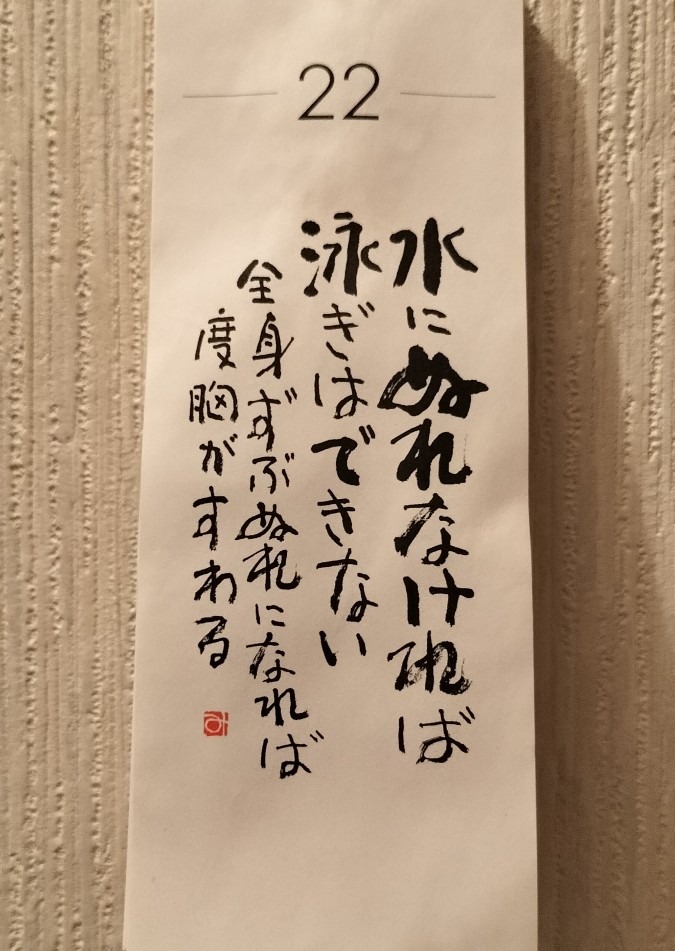 22
水にぬれなければ
泳ぎはできない
全身ずぶぬれになれば
度胸がすわる
み